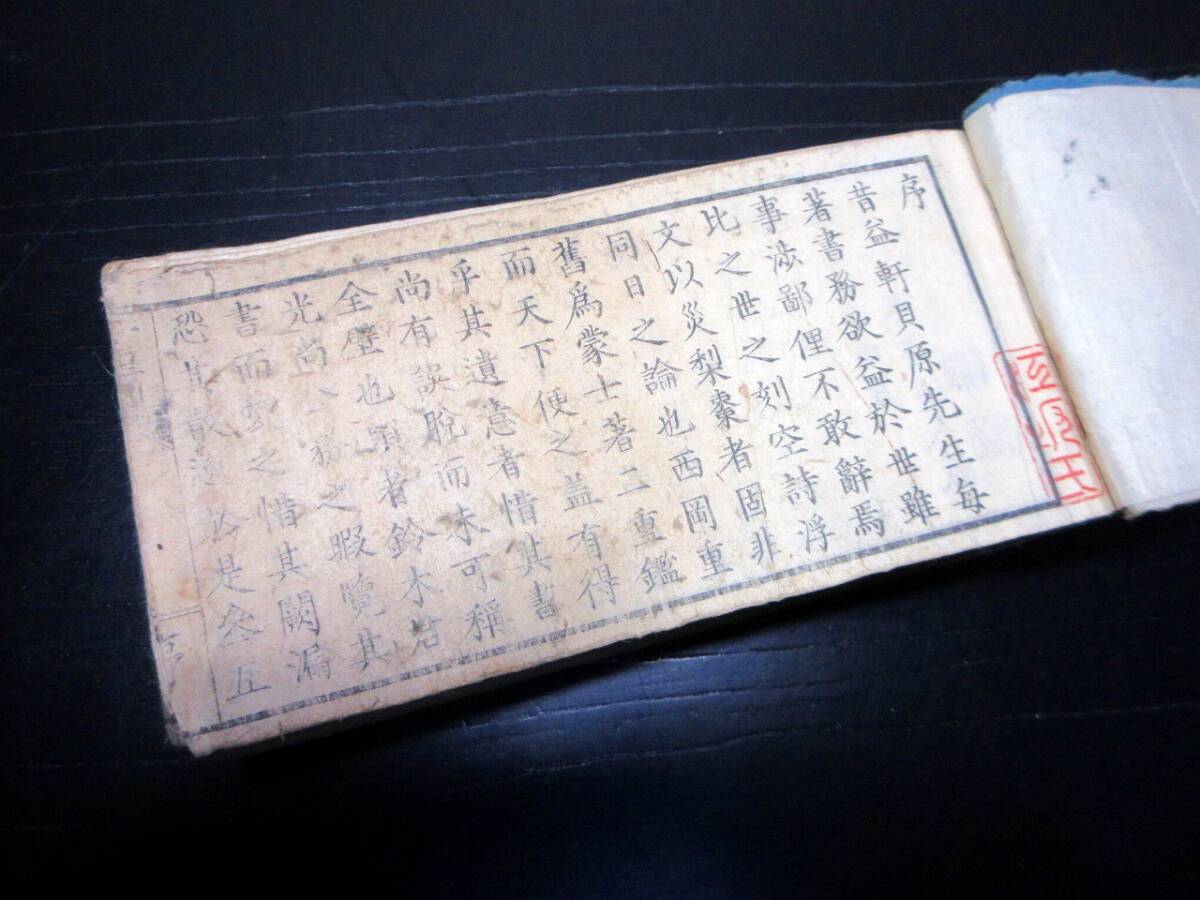 序
昔益軒貝原先生每
著書務欲益於世雖
事渉鄙俚不敢辭焉
比之世之刻空詩浮
文以災梨棗者固非
同日之論也西岡重
舊爲蒙士著二重鑑
而天下便之益有得
乎其遺意者惜其書
尚有誤脫而未可稱
全璧也 者鈴木若
光尚 之暇覽其
書而 之惜其闕漏
恐 是叅五